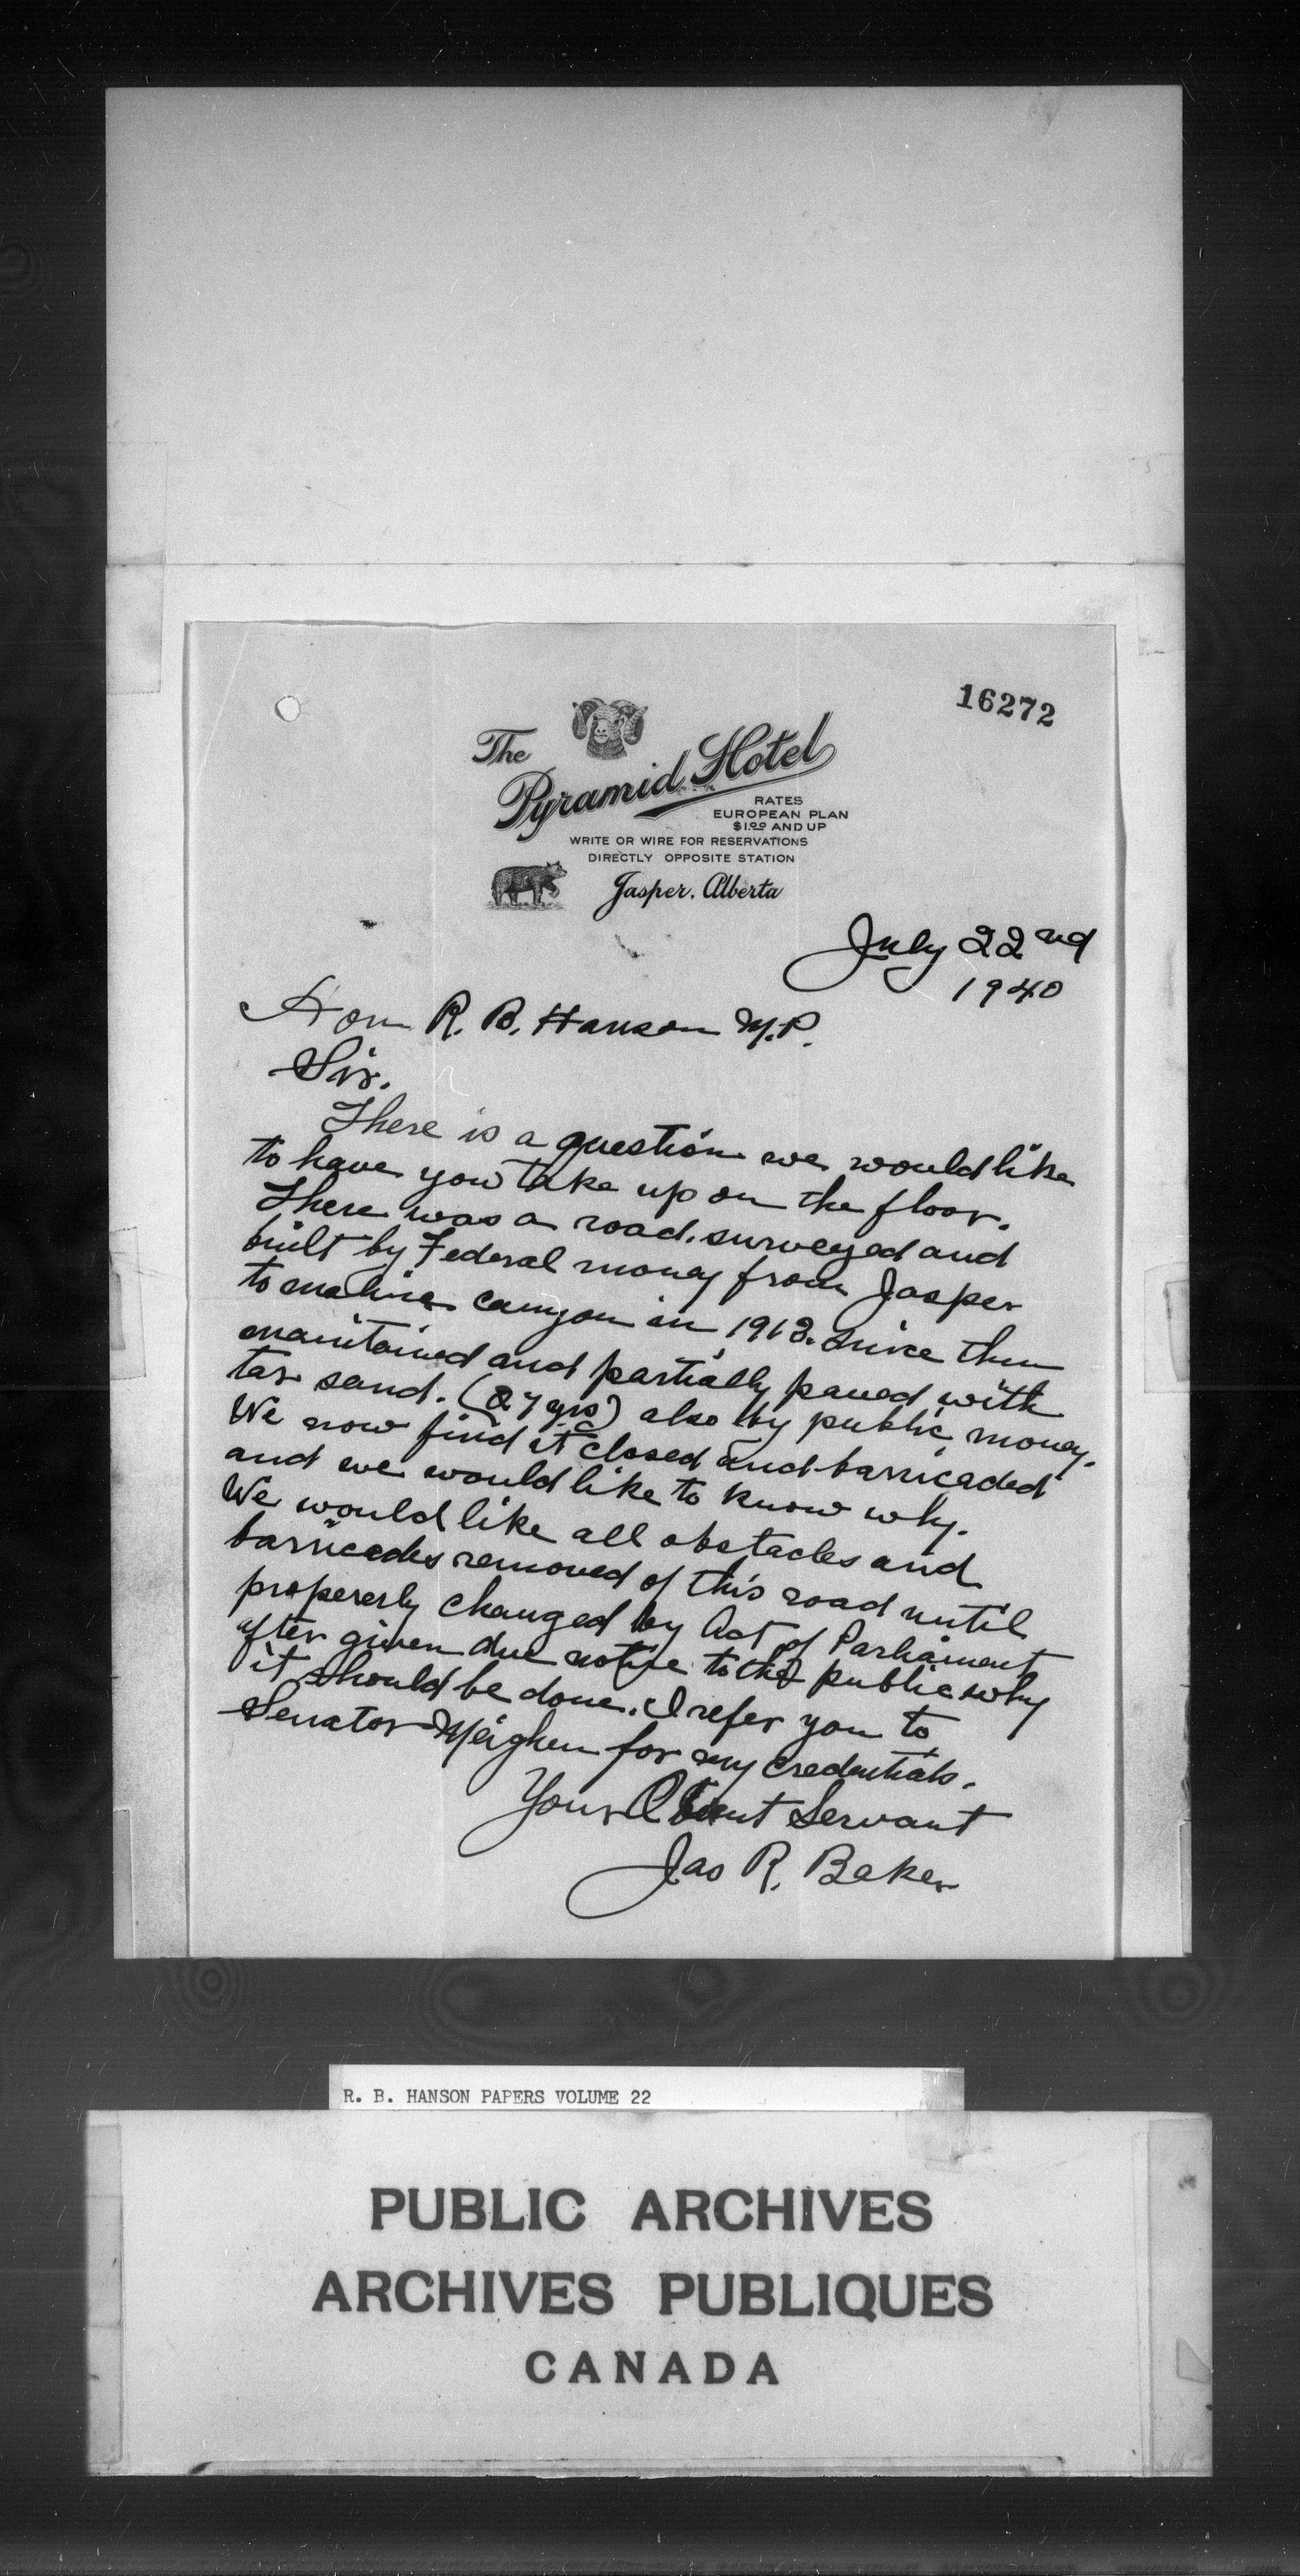 16272
The
Pyramid Hotel
RATES
EUROPEAN PLAN
$1.00 AND UP
WRITE OR WIRE FOR RESERVATIONS
DIRECTLY OPPOSITE STATION
Jasper, Alberta
July 22nd
1940
Hon R. B. Hanson M.P.
Sir.
There is a question we would like
to have you take up on the floor.
There was a road surveyed and
built by Federal money from Jasper
to maline canyon in 1913. Since then
maintained and partially paved with
tar sand. (27 yrs) also by public money.
We now find it closed and barricaded
and we would like to know why.
We would like all obstacles and
barricades removed of this road until
propererly changed by Act of Parliament
after given due notice to the public why
it should be done. I refer you to
Senator Meighen for my credentials.
Your Servant
Jas R. Baker
R. B. HANSON PAPERS VOLUME 22
PUBLIC ARCHIVES
ARCHIVES PUBLIQUES
CANADA